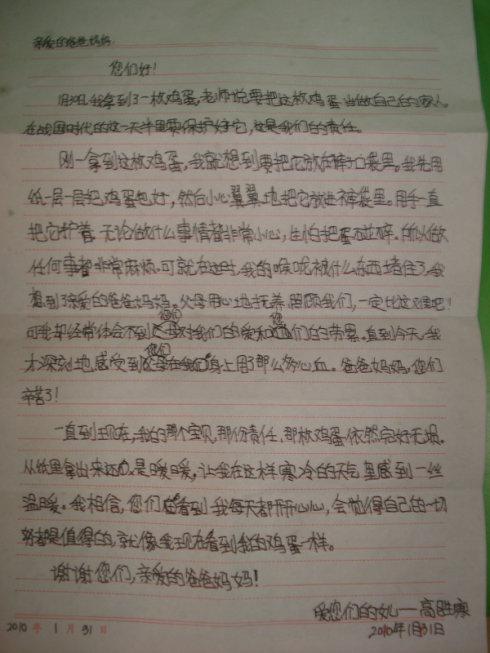 亲爱的爸爸妈妈:
您们好!
我拿到了一枚鸡蛋,老师说要把这枚鸡蛋当做自己的家人。
在战国时代的这一天半里要保护好它,这是我们的责任。
刚一拿到这枚鸡蛋,我就想到要把它放在裤子口袋里。我先用
纸一层一层把鸡蛋包好,然后小心翼翼地把它放进裤袋里。用手一直
把它护着,无论做什么事情都非常小心,生怕把蛋碰碎。所以做
任何事都非常麻烦。可就在这时,我的喉咙被什么东西堵住了,我
想到了亲爱的爸爸妈妈。父母用心地抚养、照顾我们,一定比这难吧!
可我却经常体会不到您们对我们的爱和您们的劳累。直到今天,我
才深刻地感受到您们在我身上用了那么多心血。爸爸妈妈,您们
辛苦了!
一直到现在,我的那个宝贝,那份责任,那枚鸡蛋依然完好无损。
从纸里拿出来还是暖暖,让我在这样寒冷的天气里感到一丝
温暖。我相信,您们在看到我每天都开开心心,会觉得自己的一切
努力都是值得的,就像我现在看到我的鸡蛋一样。
谢谢您们,亲爱的爸爸妈妈!
爱您们的女儿——高胜
2010年1月31日
2010年1月31日